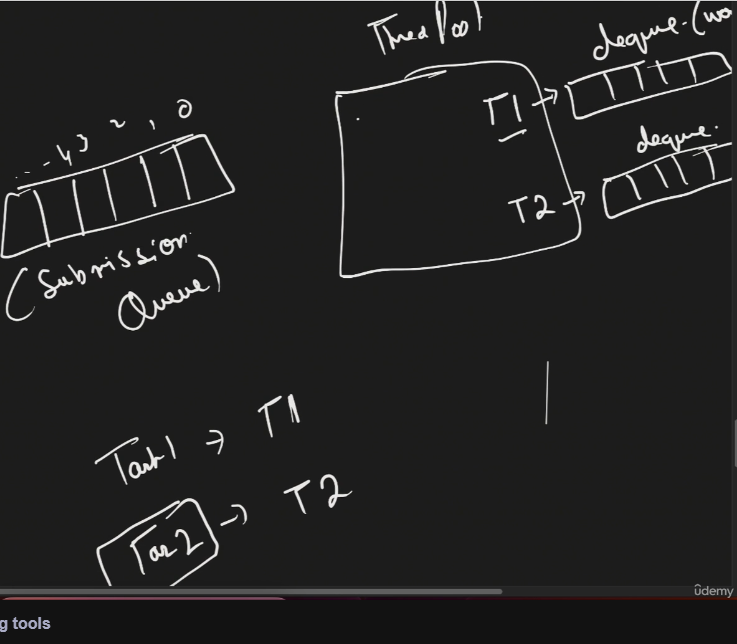 Thread Pool
deque (wo
T1 →
deque.
T2 →
... - 4 3 2 1 0
(Submission
Queue)
Task1 → T1
Tas2 → T2
ûdemy
g tools